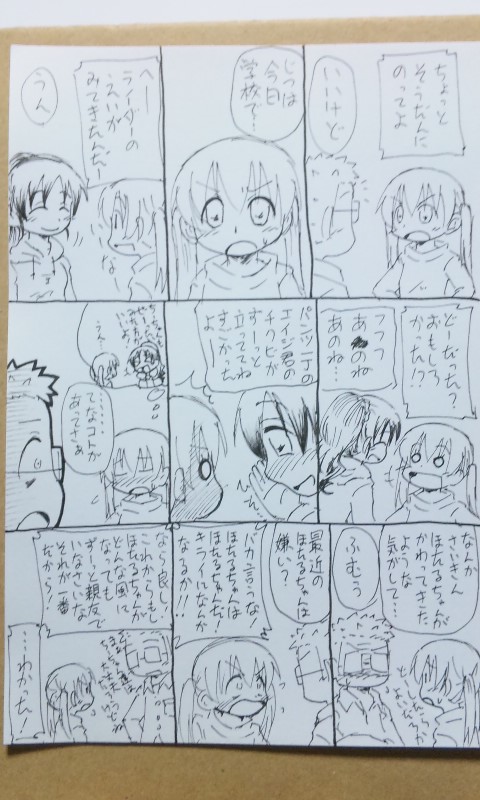 ちょっと
そうだんに
のってよ
いいけど
じつは
今日
学校で…
へー
ライダーの
えいが
みてきたんだー
うん
なー
どーだった?
おもしろ
かった!?
フフフ
あのね
あのね…
パンツ一丁の
エイジ君の
チクビが
ずーっと
立ってて
すごかった
よー
え…
……
てなコトが
あってさぁ
なんか
さいきん
ほたるちゃんが
かわってきた
ような
気がして…
ふむぅ
最近の
ほたるちゃんは
嫌い?
バカ言うな!
ほたるちゃんは
ほたるちゃんだ!
キライになんか
なるか!!
なら良し!
これからも
ほたるちゃんが
どんな風に
なっても
ずーっと親友で
いなさいな
それが一番
だから!
…わかった!